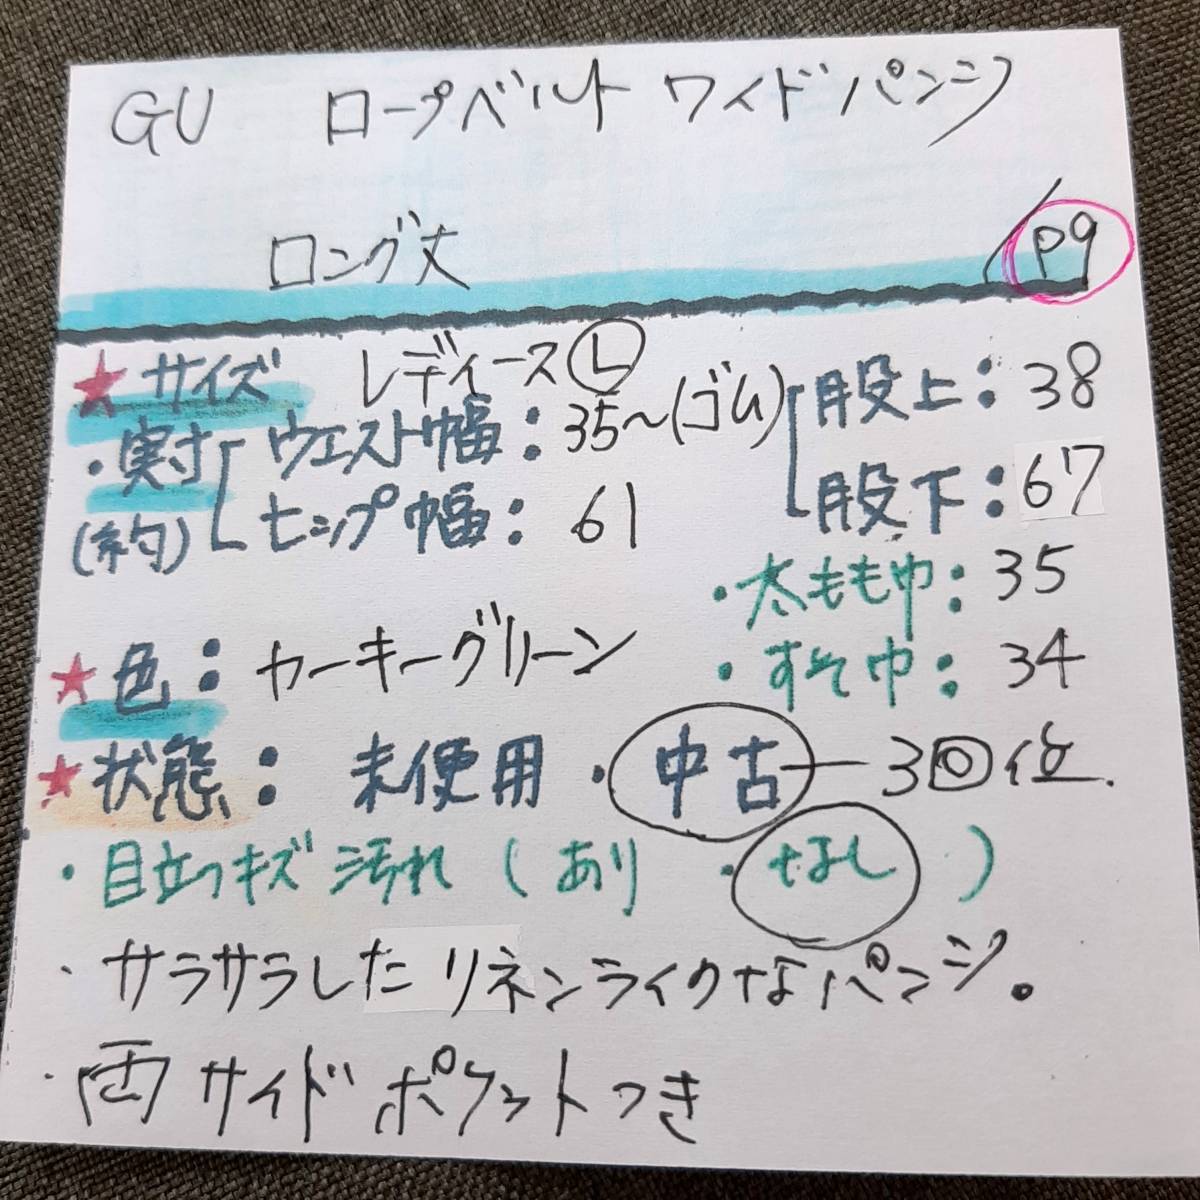 GU ロープベルト ワイドパンツ
ロング丈 P9
★サイズ レディースⓁ
・実寸(約) ウエスト幅:35〜(ゴム) 股上:38
ヒップ幅:61 股下:67
・太もも巾:35
・すそ巾:34
★色:カーキーグリーン
★状態:未使用・中古ー3回位.
・目立つキズ汚れ(あり・なし)
・サラサラしたリネンライクなパンツ。
・両サイドポケットつき